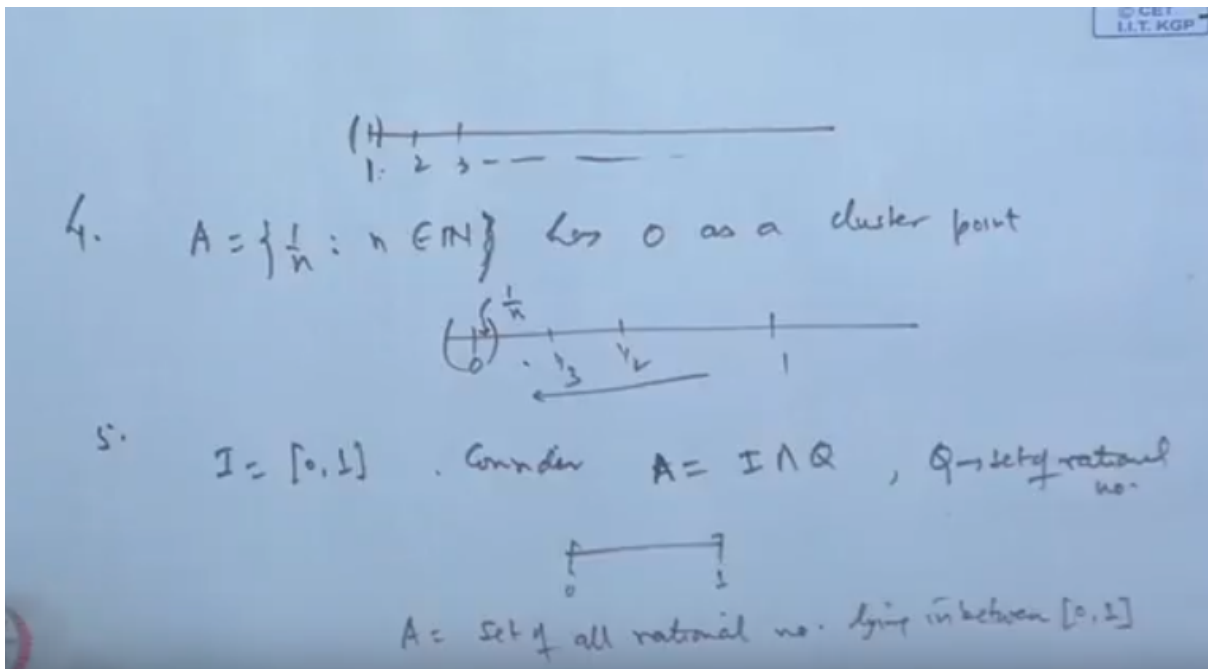 © CET
I.I.T. KGP
1. 2 3 - - — —
4. A = { 1/n : n ∈ IN } has 0 as a cluster point
1/n
0 . 1/3 1/2 1
5. I = [0,1] . Consider A = I ∩ Q , Q → set of rational no.
0 1
A = Set of all rational no. lying in between [0,1]